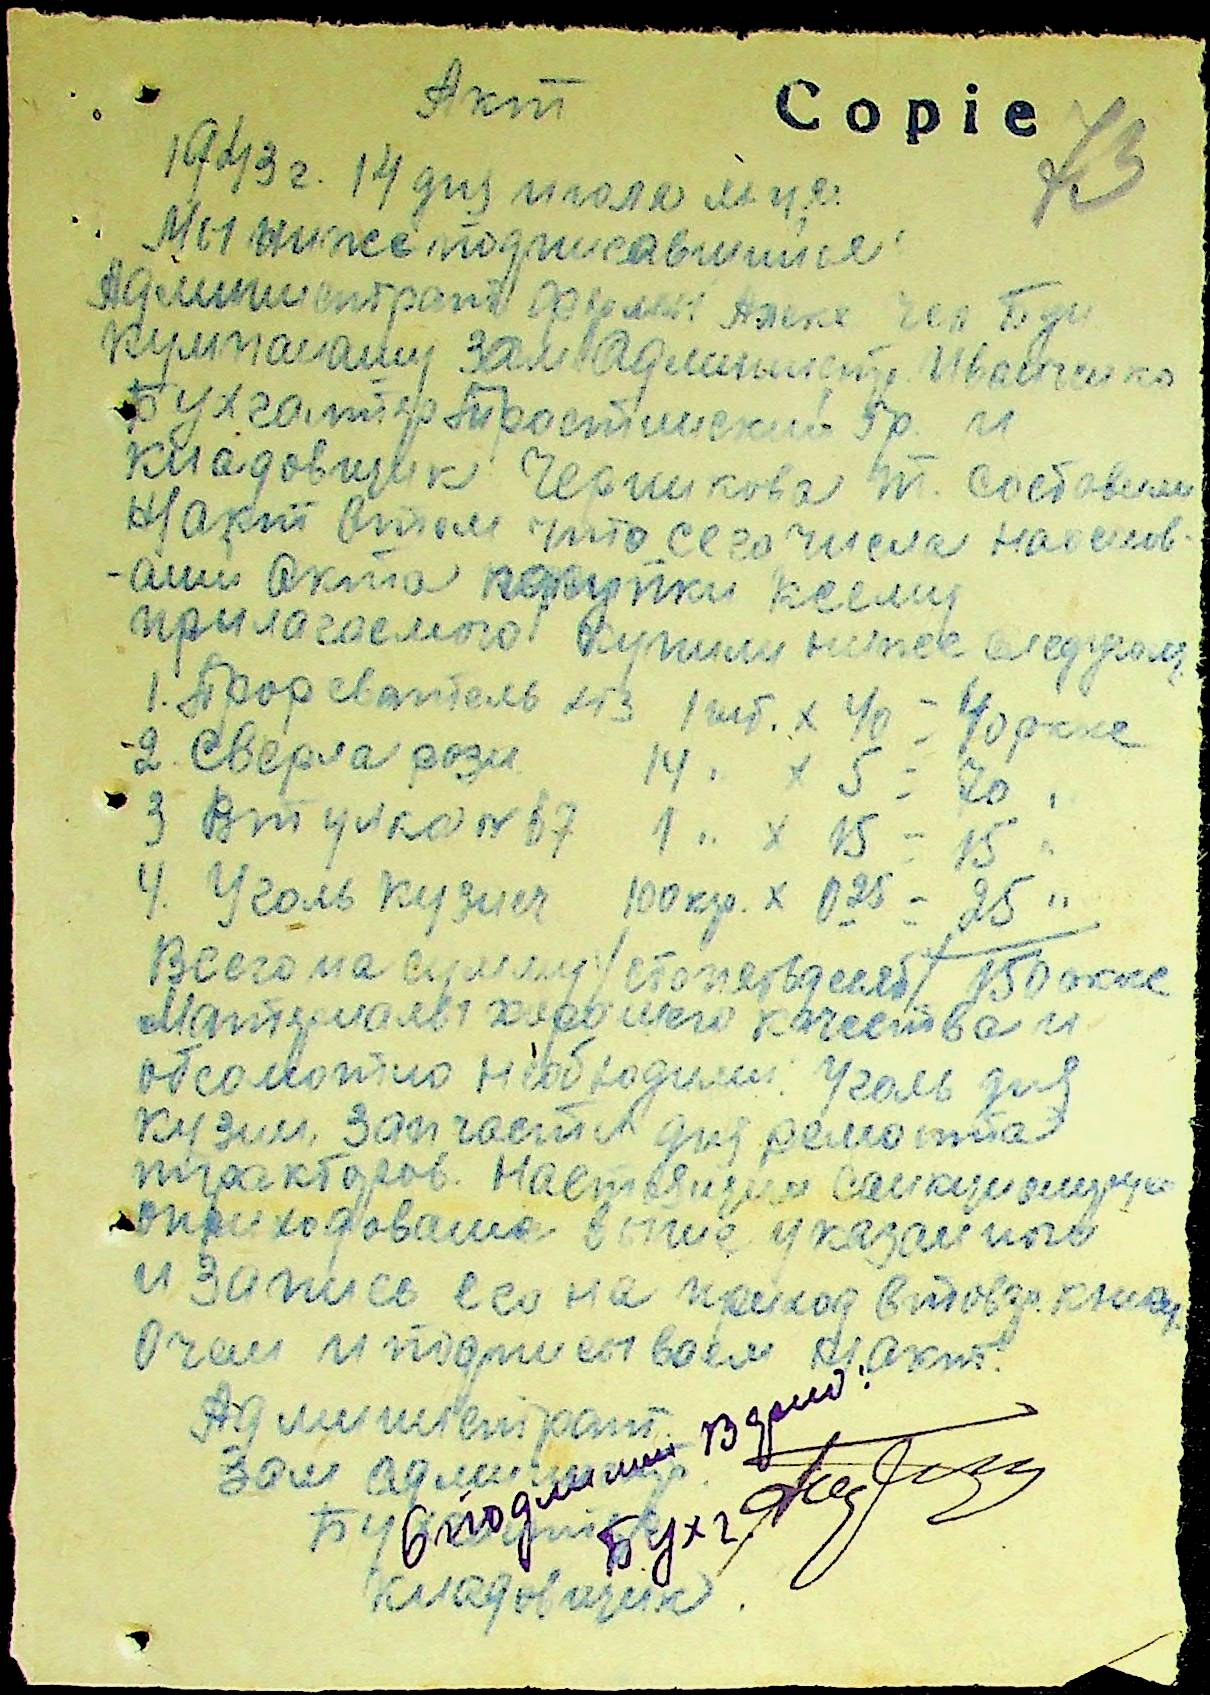 Акт
Copie
73
1943 г. 14 дня июля м-ца.
Мы ниже подписавшийся
Администрат фермы
Зам Администр. Иванченко
Бухгалтер Гр. и
кладовщик Черникова Т. составили
Н/акт отом что сего числа наоснов-
-ании Акта покупки ксему
прилагаемого купили ниже следующ.
1. ХТЗ 1 шт. х 40 = 40 ркке
2. Сверла разн 14 " х 5 = 70 "
3 Втулка № 67 1 " х 15 = 15 "
4. Уголь кузнеч 100 кгр. х 0 25 = 25 "
Всего на сумму /сто пятьдесят/ 150 ркке
Материалы хорошего качества и
обсолютно необходимы. Уголь для
кузни, запчасти для ремонта
тракторов. Настоящим санкционирую
оприходование выше указанного
и запись его на приход втовар. книгу
Очем и подписываем н/акт.
Администрат.
Зам админстр.
Бухгалтер
Кладовщик.
Сподлиным верно:
Бухг.